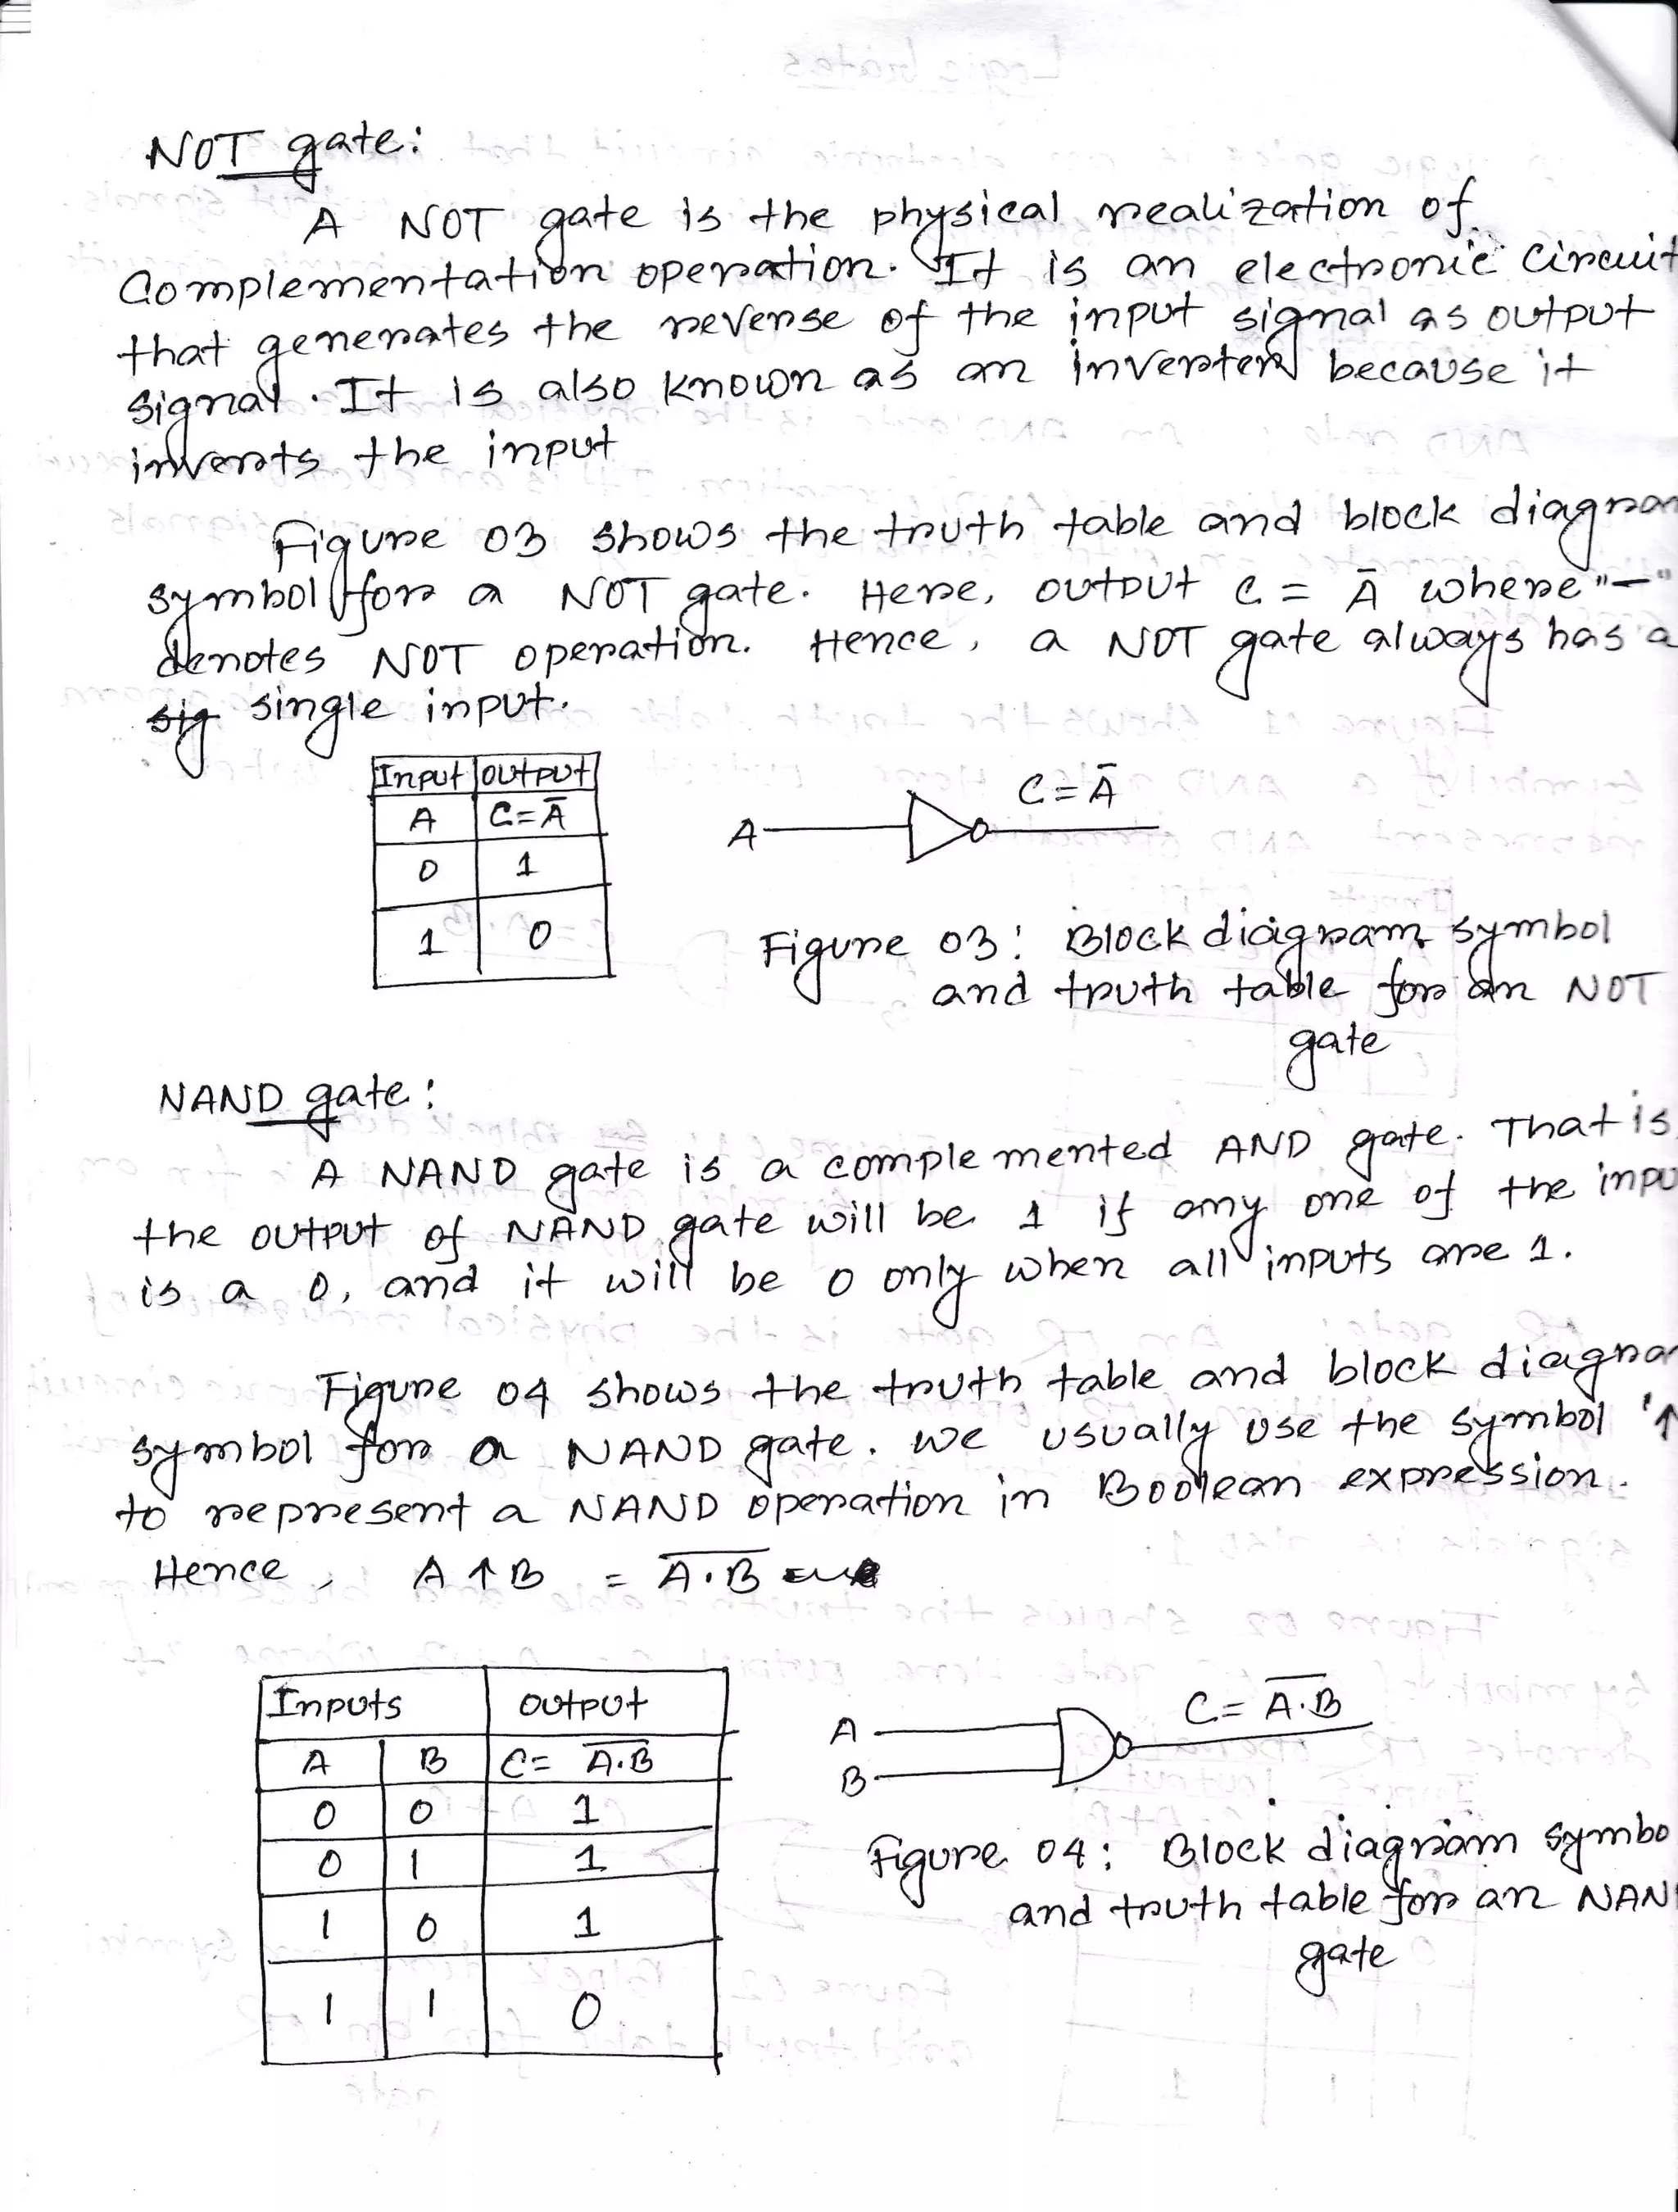 NOT gate:
A NOT gate is the physical realization of
Complementation operation. It is an electronic circuit
that generates the reverse of the input signal as output
signal. It is also known as an inverter because it
inverts the input
Figure 03 shows the truth table and block diagram
symbol for a NOT gate. Here, output C = Ā where "—"
denotes NOT operation. Hence, a NOT gate always has a
single input.
Input output
A C=Ā
0 1
1 0
A
C=Ā
Figure 03: Block diagram symbol
and truth table for an NOT
gate
NAND gate:
A NAND gate is a complemented AND gate. That is
the output of NAND gate will be 1 if any one of the inpu
is a 0, and it will be 0 only when all inputs are 1.
Figure 04 shows the truth table and block diagra
symbol for a NAND gate. we usually use the symbol '↑
to represent a NAND operation in Boolean expression.
Hence, A ↑ B = A̅.̅B̅
Inputs output
A B C= A̅.̅B̅
0 0 1
0 1 1
1 0 1
1 1 0
A
B
C= A̅.̅B̅
Figure 04: Block diagram symbo
and truth table for an NAN
gate